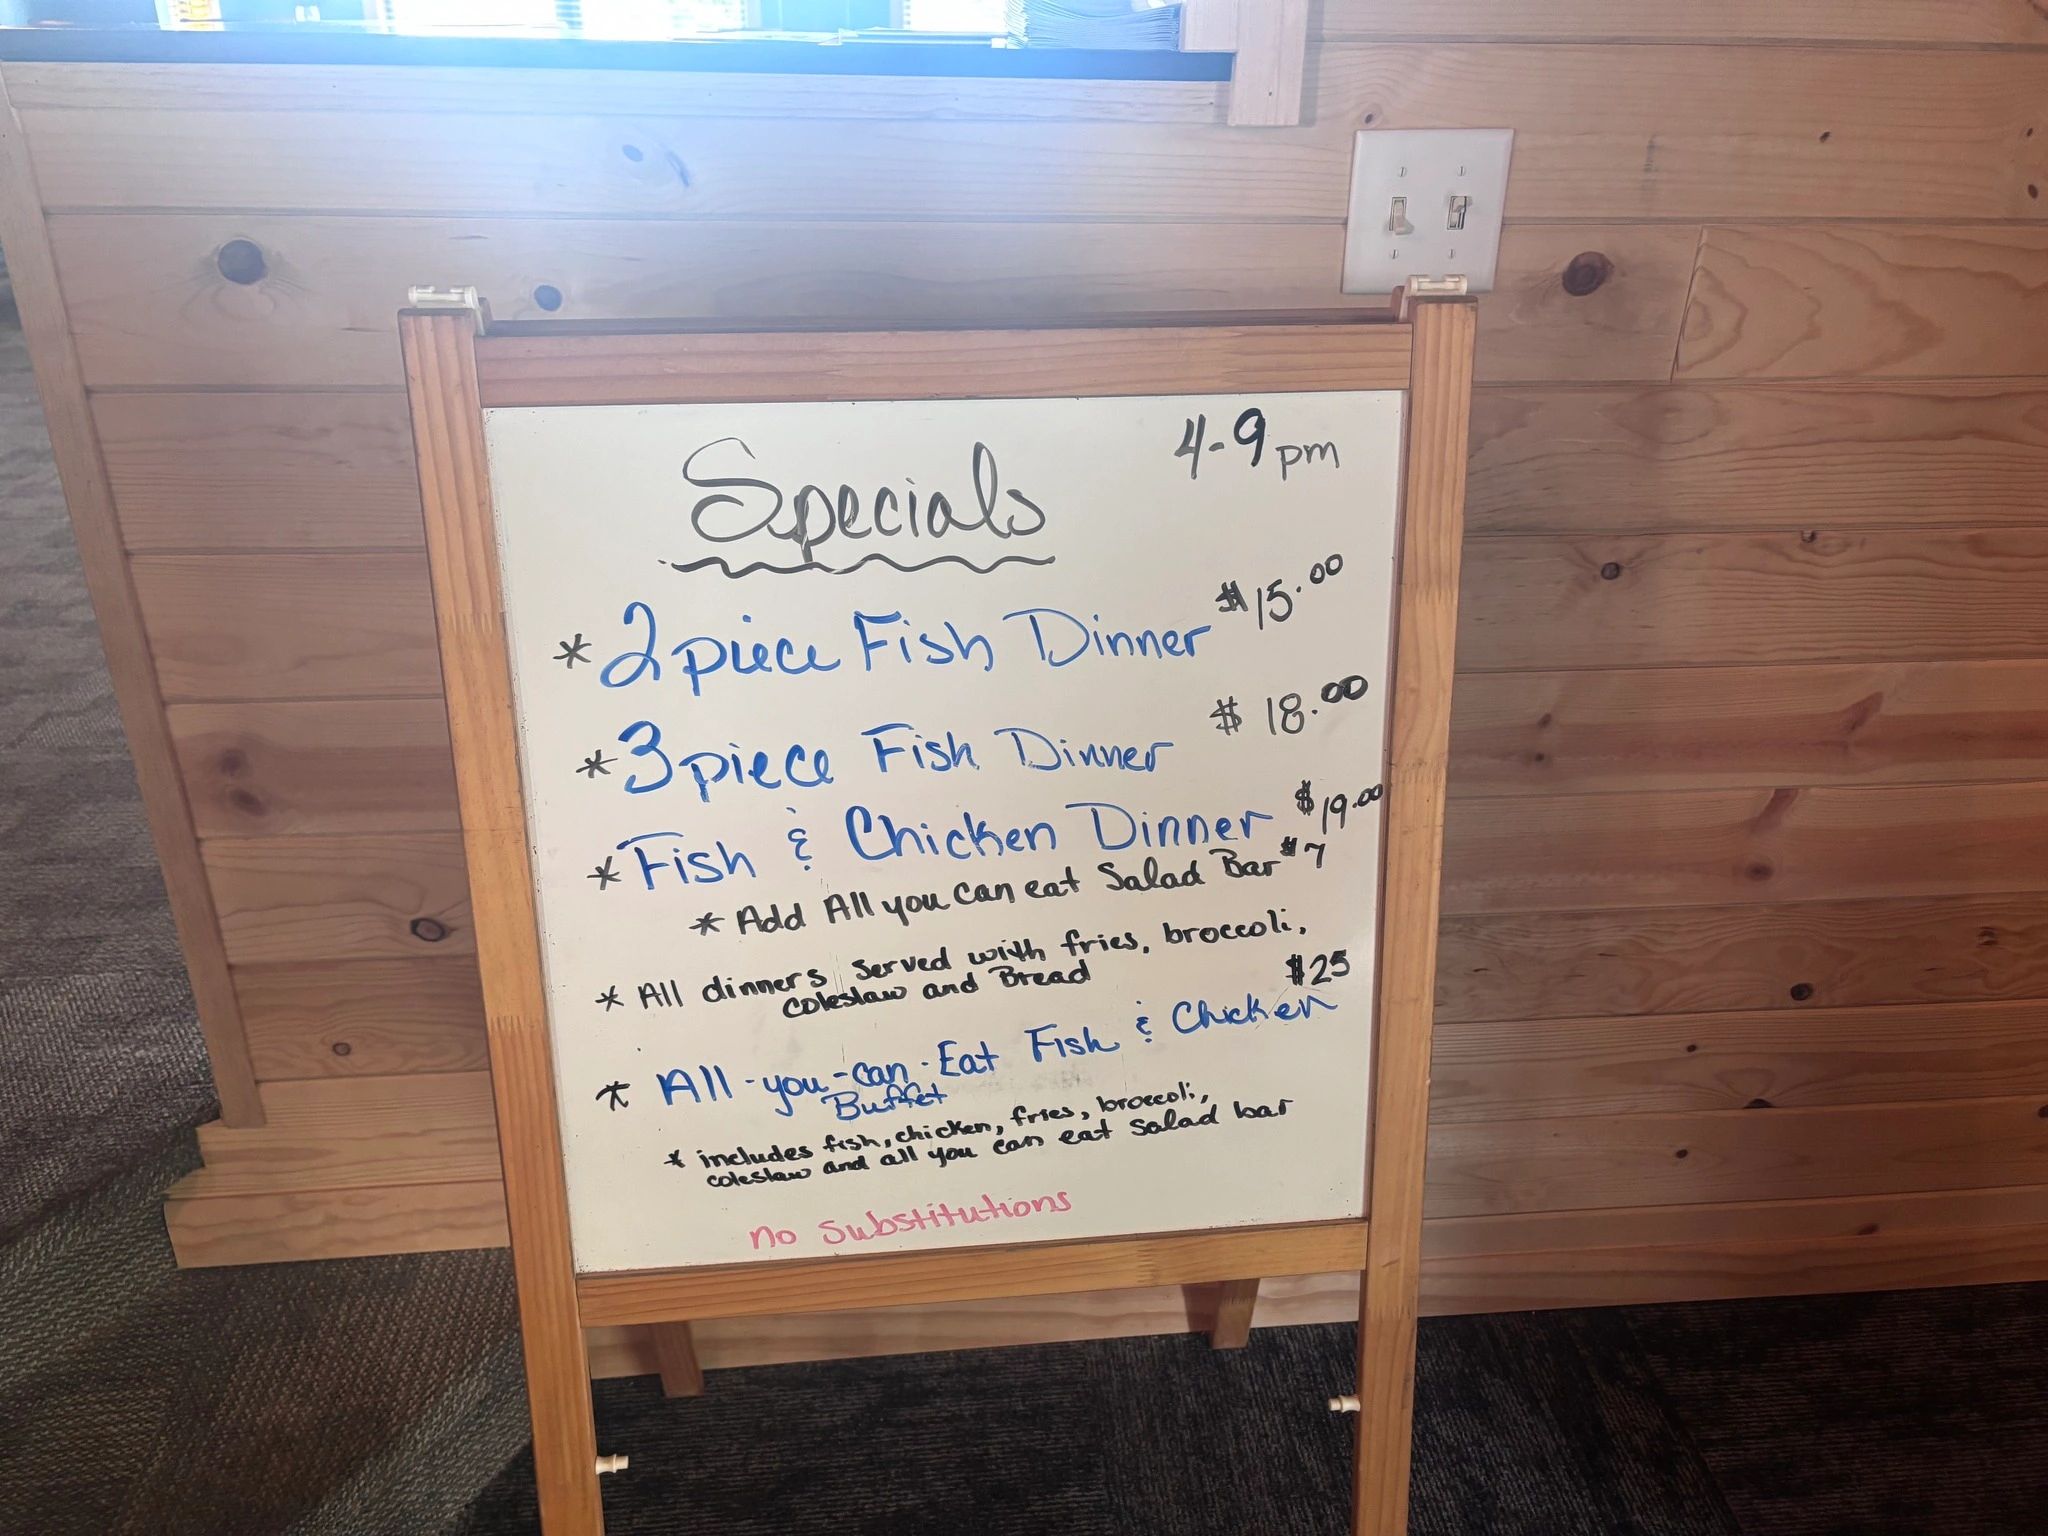 4-9 pm
Specials
* 2 piece Fish Dinner $15.00
* 3 piece Fish Dinner $18.00
* Fish & Chicken Dinner $19.00
* Add All you can eat Salad Bar $7
* All dinners served with fries, broccoli,
coleslaw and Bread
* All-you-can-Eat Fish & Chicken $25
Buffet
* includes fish, chicken, fries, broccoli,
coleslaw and all you can eat salad bar
no substitutions